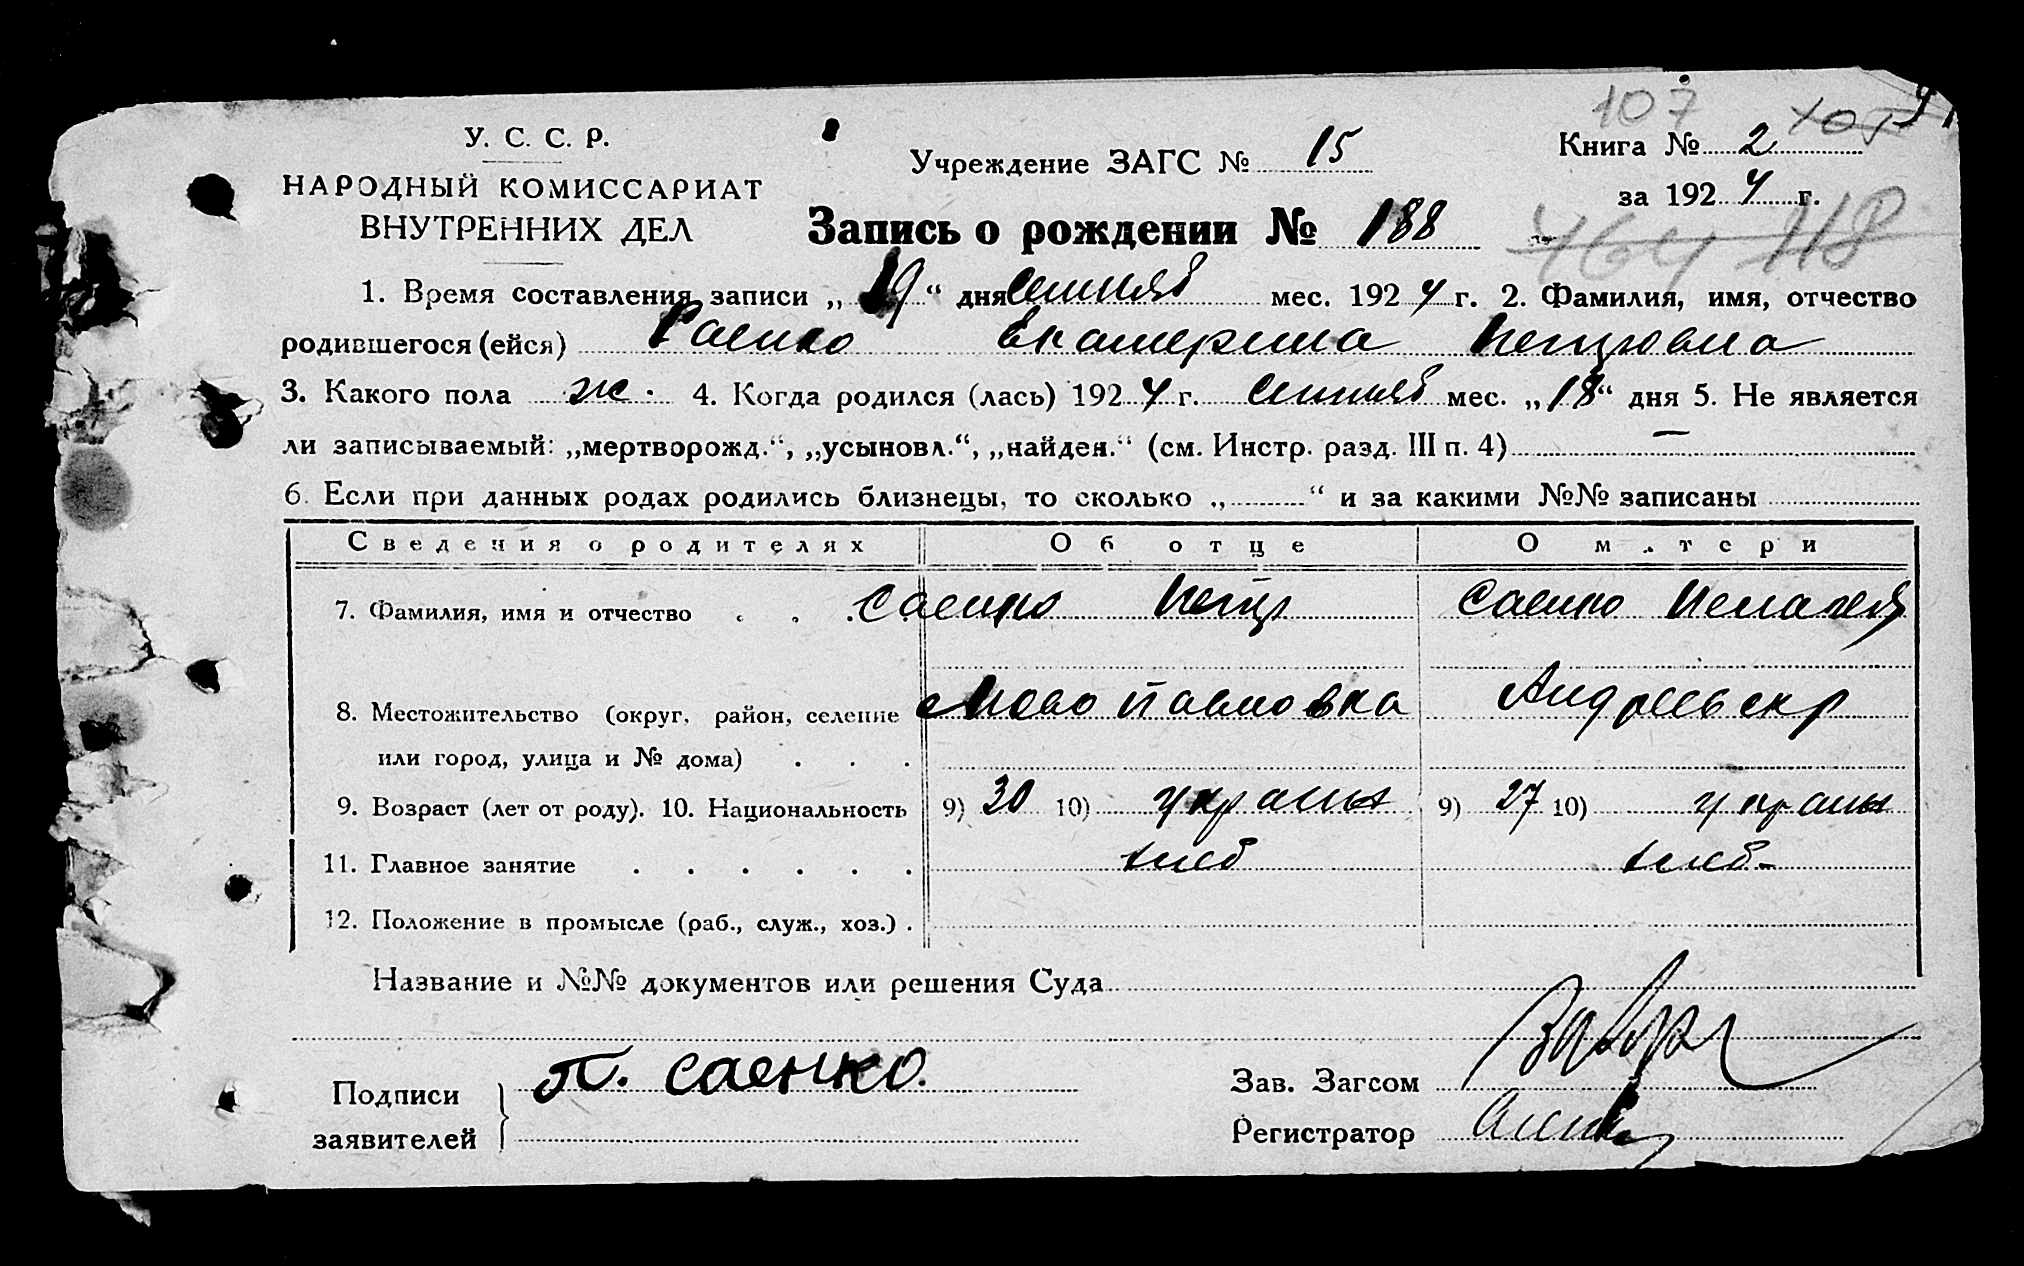 107
У. С. С. Р.
НАРОДНЫЙ КОМИССАРИАТ
ВНУТРЕННИХ ДЕЛ
Учреждение ЗАГС № 15
Книга № 2 105
за 192 4 г.
Запись о рождении № 188
464 118
1. Время составления записи „ 19 “ дня мес. 192 4 г. 2. Фамилия, имя, отчество
родившегося (ейся) Саенко Екатерина Петровна
3. Какого пола ж. 4. Когда родился (лась) 192 4 г. мес. „ 18 “ дня 5. Не является
ли записываемый: „мертворожд.“, „усыновл.“, „найден.“ (см. Инстр. разд. III п. 4) —
6. Если при данных родах родились близнецы, то сколько „ “ и за какими №№ записаны
Сведения о родителях Об отце О матери
7. Фамилия, имя и отчество Саенко Петр Саенко
8. Местожительство (округ, район, селение Ново Павловка
или город, улица и № дома)
9. Возраст (лет от роду). 10. Национальность 9) 30 10) украин 9) 27 10) украин
11. Главное занятие хлеб хлеб-
12. Положение в промысле (раб., служ., хоз.)
Название и №№ документов или решения Суда
Подписи
заявителей
П. Саенко.
Зав. Загсом
Регистратор